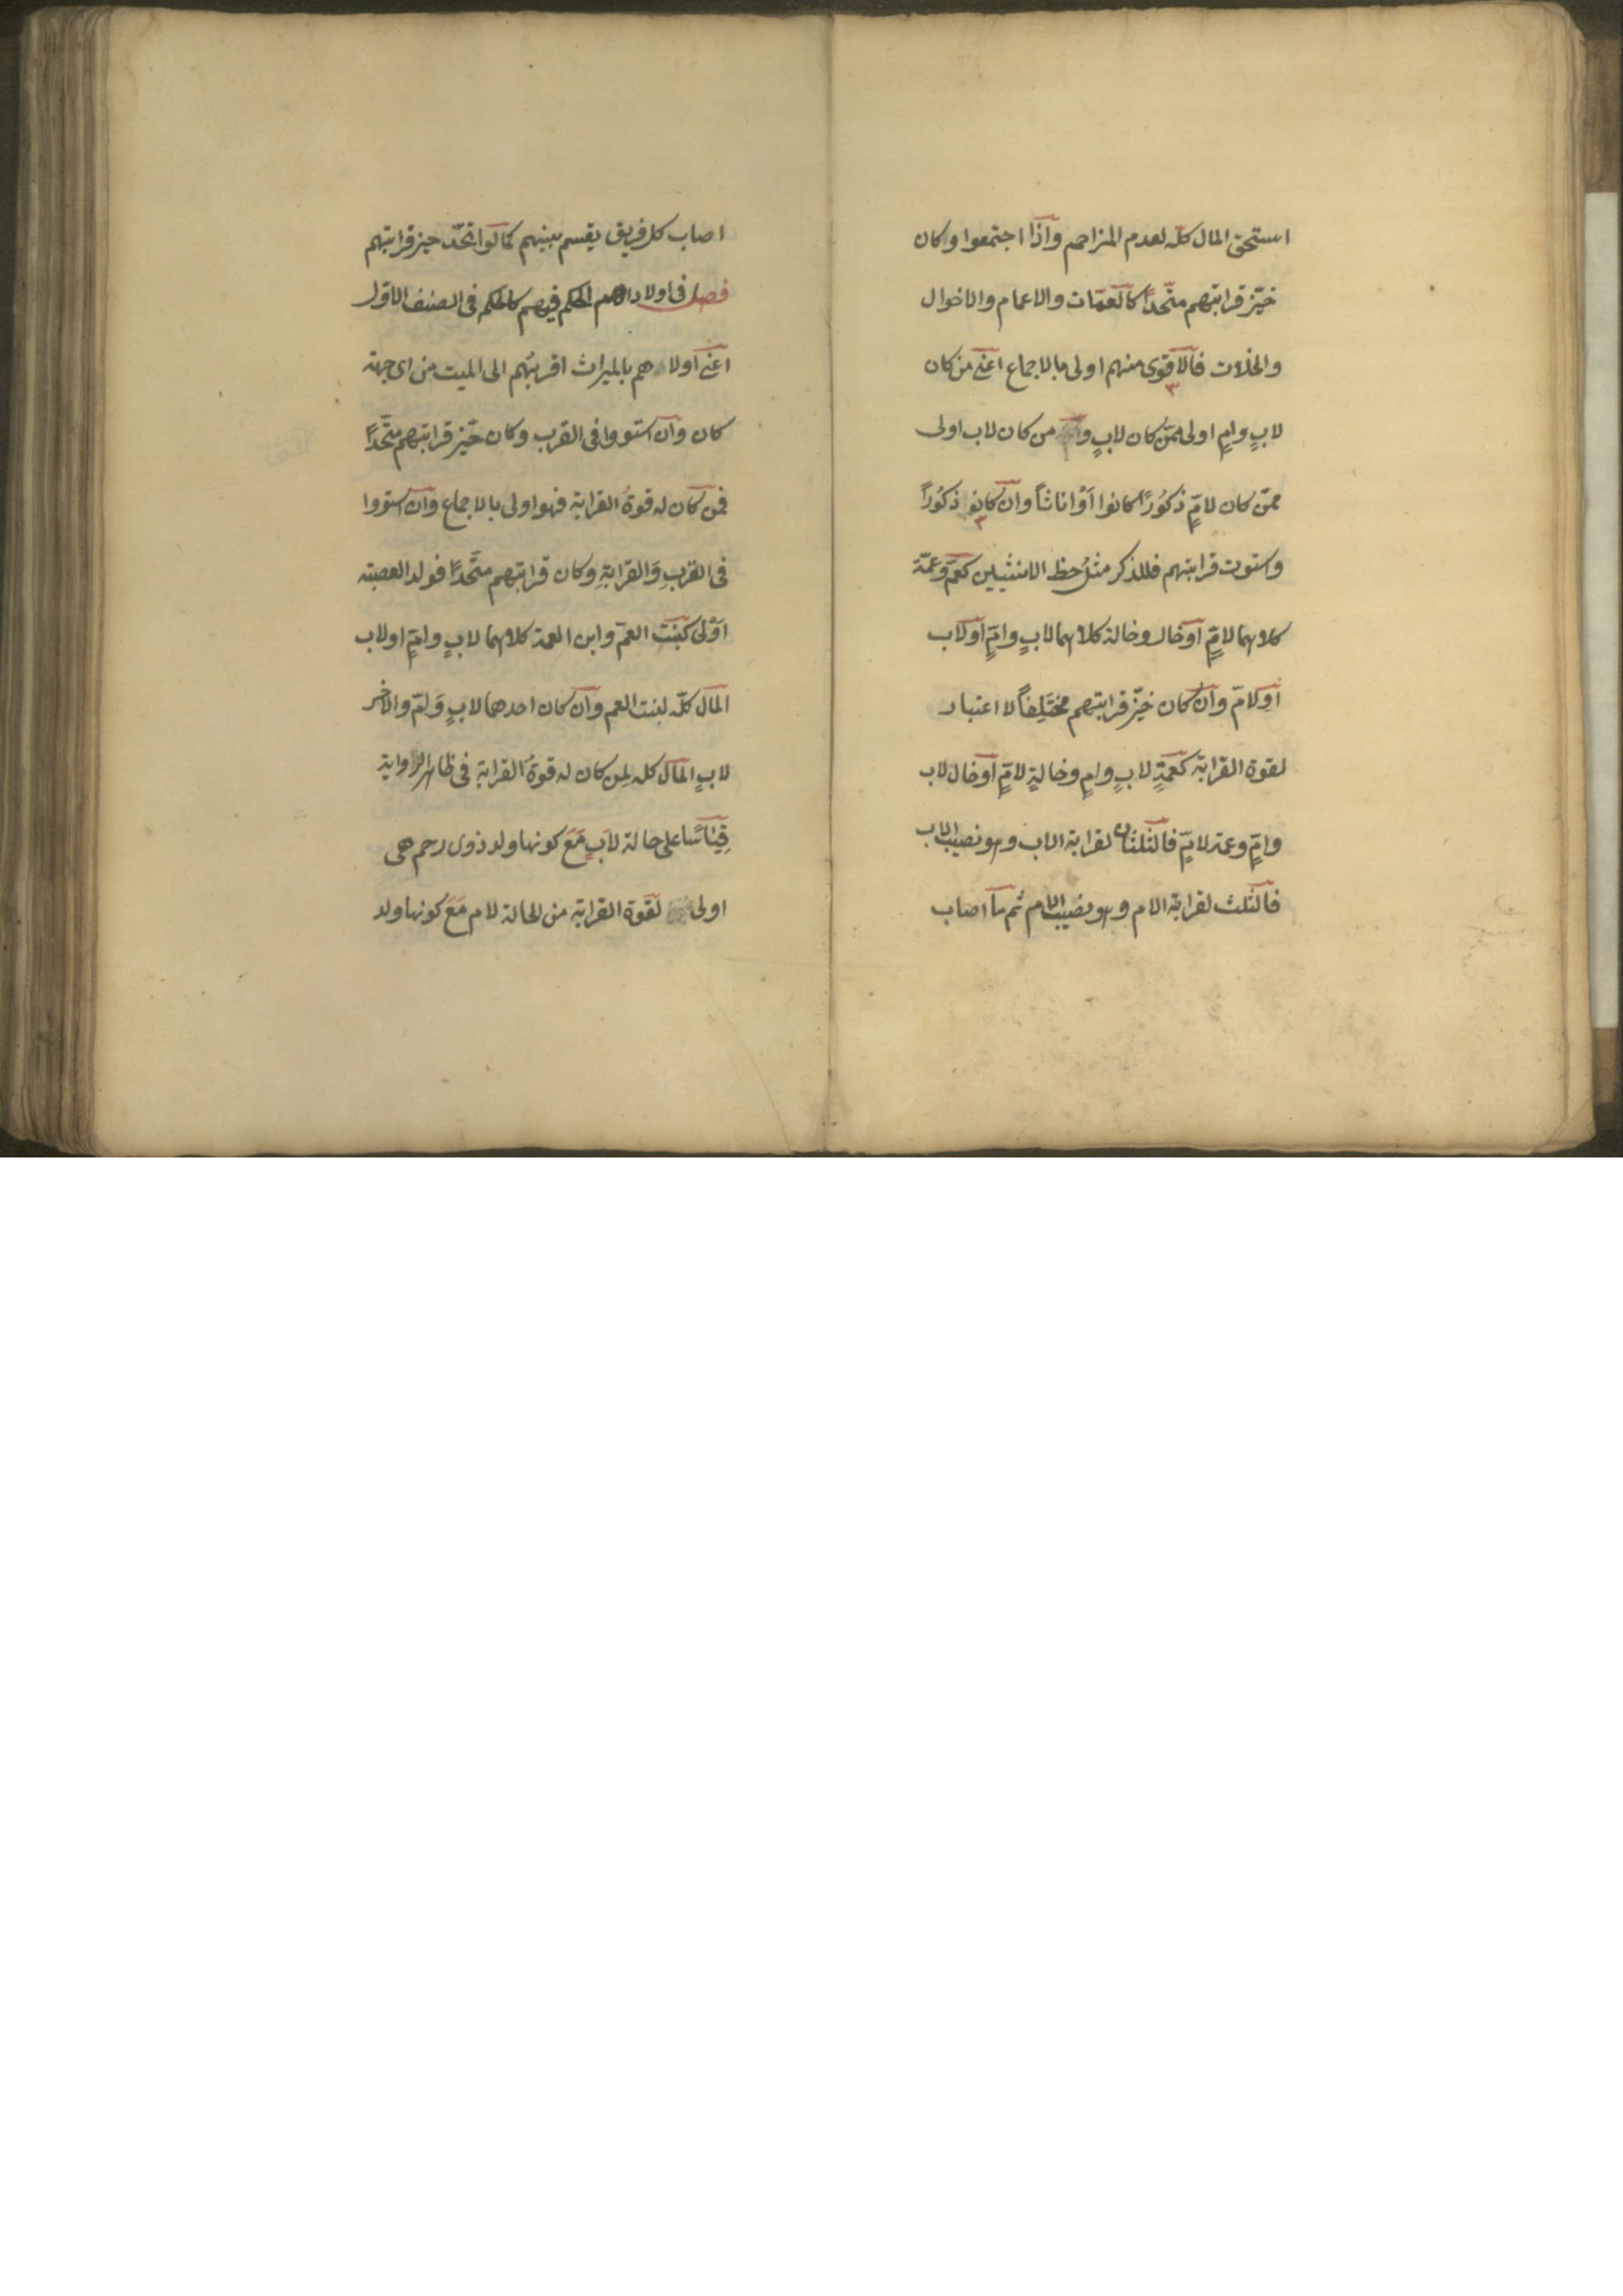 استحق المال كلّه لعدم المزاحم واذا اجتمعوا وكان
حيّز قرابتهم متّحداً كالعمّات والاعمام والاخوال
والخلات فالاقوى منهم اولى بالاجماع اعنى من كان
لابٍ وامٍ اولى ممّن كان لابٍ و من كان لاب اولى
ممّن كان لامٍّ ذكُورًا كانوا اَوْ اناثاً وان كانوا ذكُوراً
وستوت قرابتهم فللذكر مثلُ حظ الانثيين كعمّ وعمّة
كلاهما لامٍّ اوخال وخالة كلاهما لابٍ وامٍّ اولاب
اولامّ وان كان حيّز قرابتهم مختَلِفاً لا اعتبار
لقوة القرابة كعمّةٍ لابٍ وامٍ وخالةٍ لامٍّ اوخال لاب
وامٍّ وعمة لامٍّ فالثلثان لقرابة الاب وهو نصيب الاب
فالثلث لقرابة الام وهو نصيب الام ثم ما اصاب
اصاب كل فريق يقسم بينهم كما لو اتحّد حيز قرابتهم
فصل فى اولادهم الحكم فيهم كالحكم فى الصنف الاول
اعنى اولاهم بالميراث اقربُهم الى الميت من اى جهة
كان وان ستووا فى القرب وكان حيّز قرابتهم متّحداً
فمن كان له قوةُ القرابة فهو اولى بالاجماع وان ستووا
فى القربِ وَالقرابةِ وكان قرابتهم متّحداً فولد العصبة
اَوْلى كبنت العمّ وابن العمة كلاهما لابٍ وامٍّ اولاب
المال كلّه لبنت العم وان كان احدهما لابٍ وَامّ والاخر
لابٍ المال كله لِمن كان له قوةُ القرابة فى ظاهر الرواية
قِيَاسًا على خالة لابٍ مَعَ كونها ولد ذوى رحم هى
اولى لقوة القرابة من الخالة لام مَعَ كونها ولد